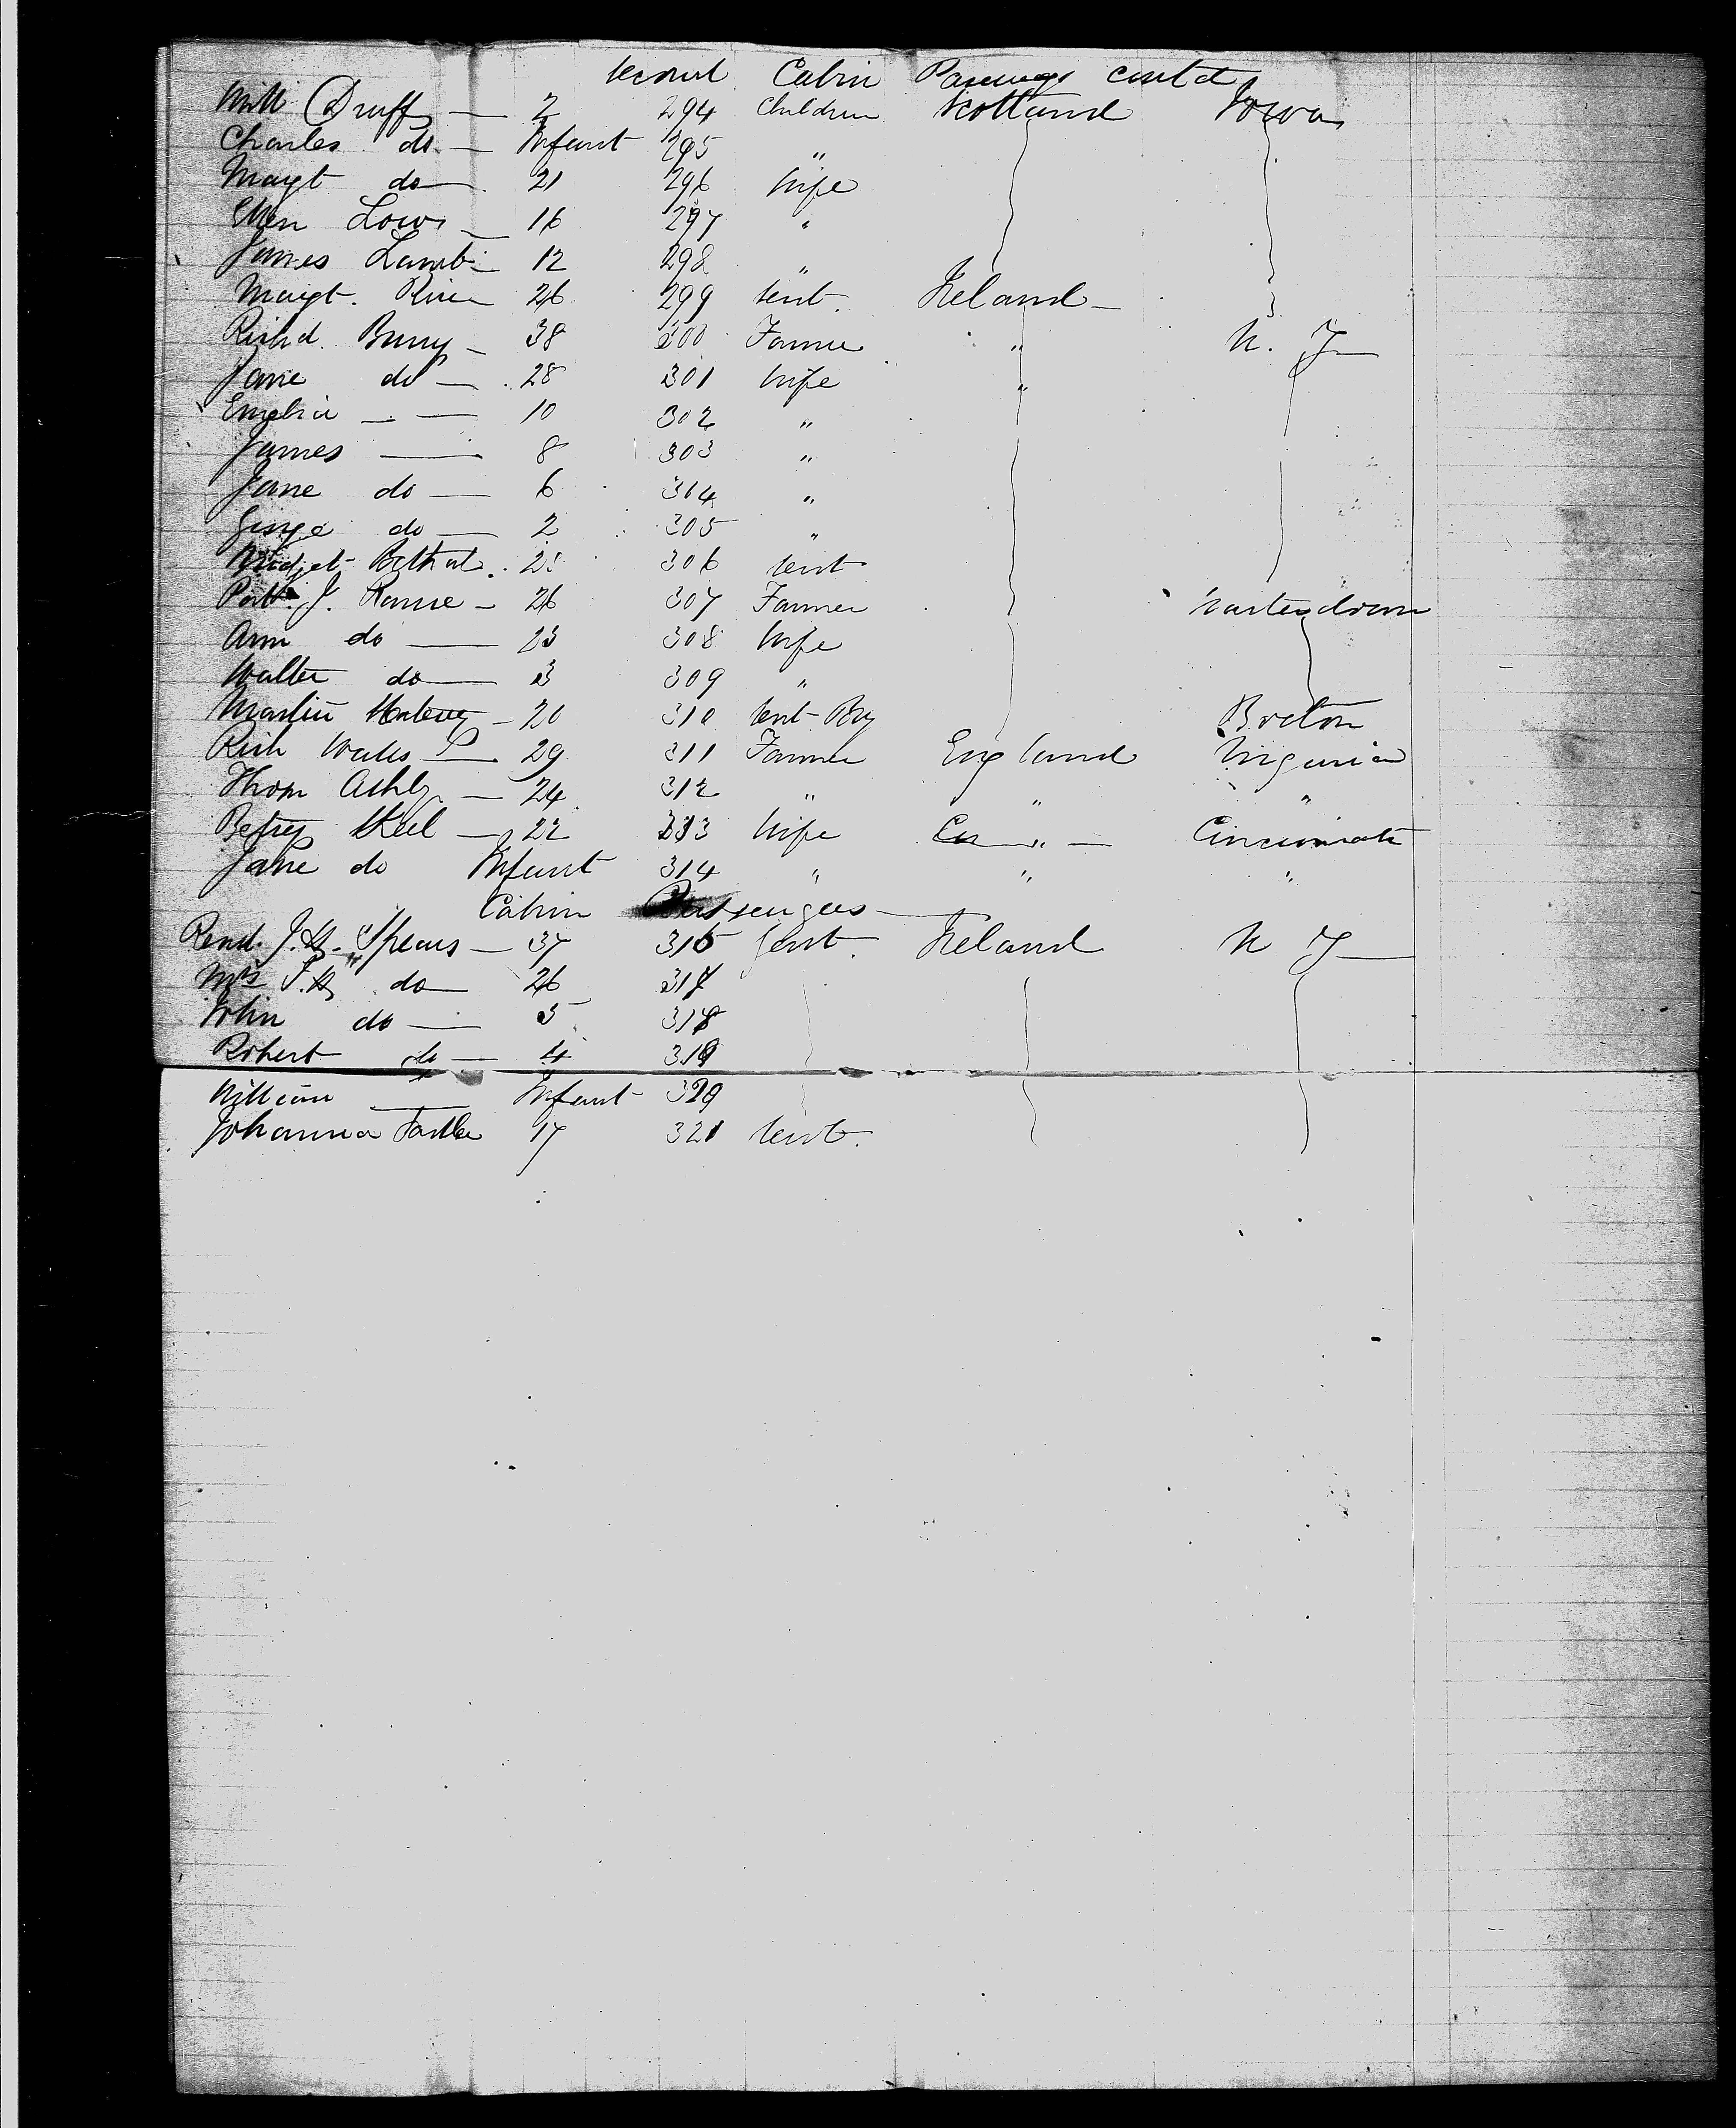 Second Cabin Passengers contd
Will Druff — 2 294 Children Scotland Iowa
Charles do — Infant 295 "
Margt do — 21 296 Wife
Ellen Low — 16 297 "
James Lamb — 12 298 "
Margt. 26 299 Servt. Ireland —
Richd. Burry — 38 300 Farmer " N. Y —
Jane do — 28 301 Wife "
— — 10 302 "
James — 8 303 "
Jane do — 6 304 "
George do — 2 305 "
Bridget 306 Servt
Patk. J. — 26 307 Farmer
Ann do — 23 308 Wife
Walter do — 3 309 "
Martin — 20 310 Servt Boy Boston
Rich Wales — 29 311 Farmer England Virginia
Thom Ashby — 24 312 " " "
Betsey Steel — 22 313 Wife " — Cincinnati
Jane do Infant 314 " " "
Cabin Passengers —
Revd. J. H. Spears — 37 316 Gent. Ireland N Y —
Mrs J. H. do — 26 317
John do — 5 318
Robert do — 4 319
William — Infant 320
Johanna 17 321 Servt.